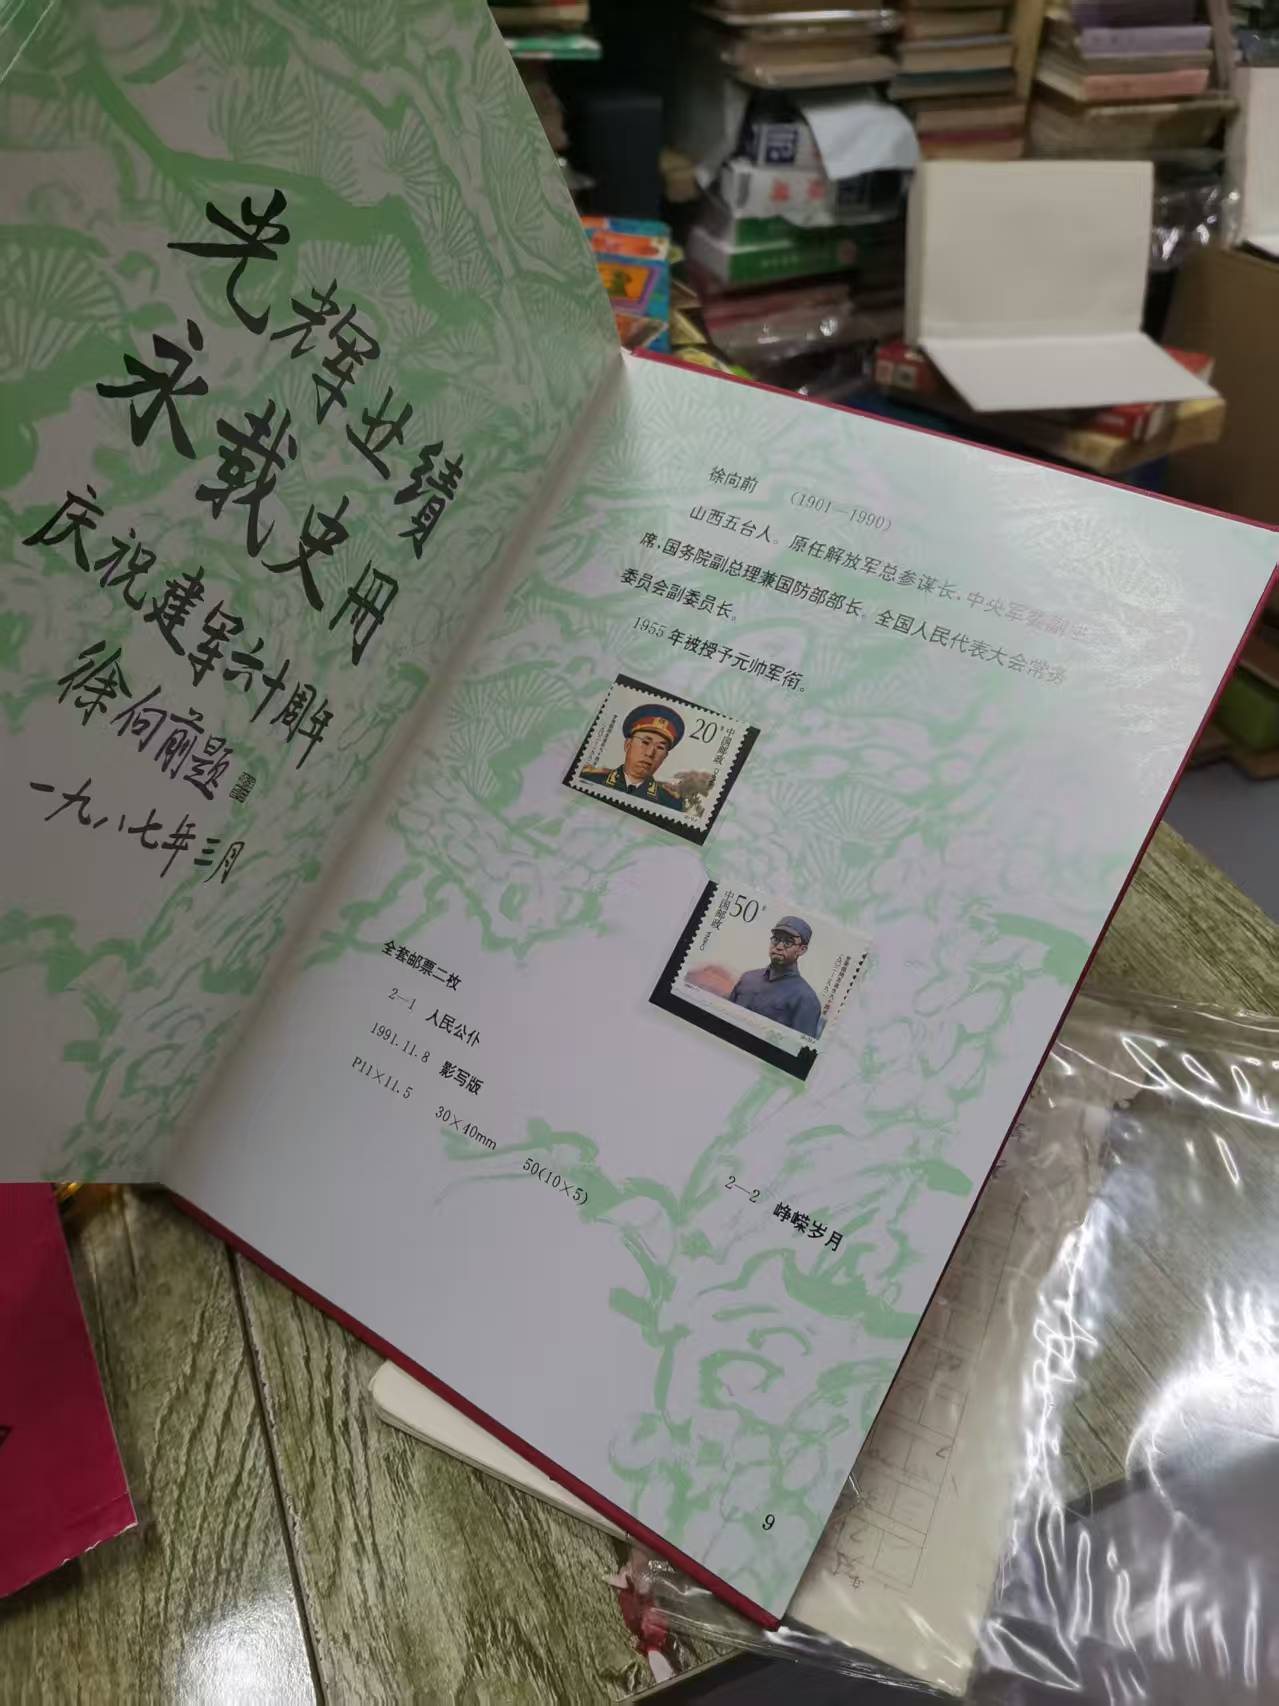 光辉业绩
永载史册
庆祝建军六十周年
徐向前题
一九八七年三月
徐向前 (1901—1990)
山西五台人。原任解放军总参谋长,中央军委副主
席,国务院副总理兼国防部部长。全国人民代表大会常务
委员会副委员长。
1955年被授予元帅军衔。
20分
中国邮政
50分
中国邮政
全套邮票二枚
2—1 人民公仆
1991.11.8 影写版
P11×11.5 30×40mm 50(10×5)
2—2 峥嵘岁月
9